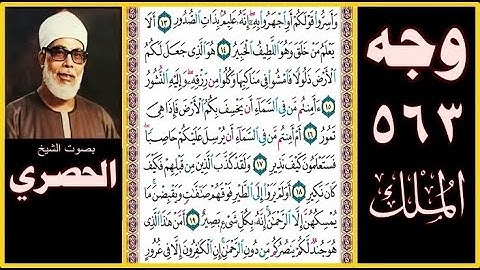 وَأَسِرُّوا۟ قَوْلَكُمْ أَوِ ٱجْهَرُوا۟ بِهِۦٓ إِنَّهُۥ عَلِيمٌۢ بِذَاتِ ٱلصُّدُورِ ١٣ أَلَا
يَعْلَمُ مَنْ خَلَقَ وَهُوَ ٱللَّطِيفُ ٱلْخَبِيرُ ١٤ هُوَ ٱلَّذِى جَعَلَ لَكُمُ
ٱلْأَرْضَ ذَلُولًا فَٱمْشُوا۟ فِى مَنَاكِبِهَا وَكُلُوا۟ مِن رِّزْقِهِۦ وَإِلَيْهِ ٱلنُّشُورُ
١٥ ءَأَمِنتُم مَّن فِى ٱلسَّمَآءِ أَن يَخْسِفَ بِكُمُ ٱلْأَرْضَ فَإِذَا هِىَ
تَمُورُ ١٦ أَمْ أَمِنتُم مَّن فِى ٱلسَّمَآءِ أَن يُرْسِلَ عَلَيْكُمْ حَاصِبًا
فَسَتَعْلَمُونَ كَيْفَ نَذِيرِ ١٧ وَلَقَدْ كَذَّبَ ٱلَّذِينَ مِن قَبْلِهِمْ فَكَيْفَ
كَانَ نَكِيرِ ١٨ أَوَلَمْ يَرَوْا۟ إِلَى ٱلطَّيْرِ فَوْقَهُمْ صَٰٓفَّٰتٍ وَيَقْبِضْنَ مَا
يُمْسِكُهُنَّ إِلَّا ٱلرَّحْمَٰنُ إِنَّهُۥ بِكُلِّ شَىْءٍۭ بَصِيرٌ ١٩ أَمَّنْ هَٰذَا ٱلَّذِى
هُوَ جُندٌ لَّكُمْ يَنصُرُكُم مِّن دُونِ ٱلرَّحْمَٰنِ إِنِ ٱلْكَٰفِرُونَ إِلَّا فِى غُرُورٍ
وجه
٥٦٣
الملك
بصوت الشيخ
الحصري